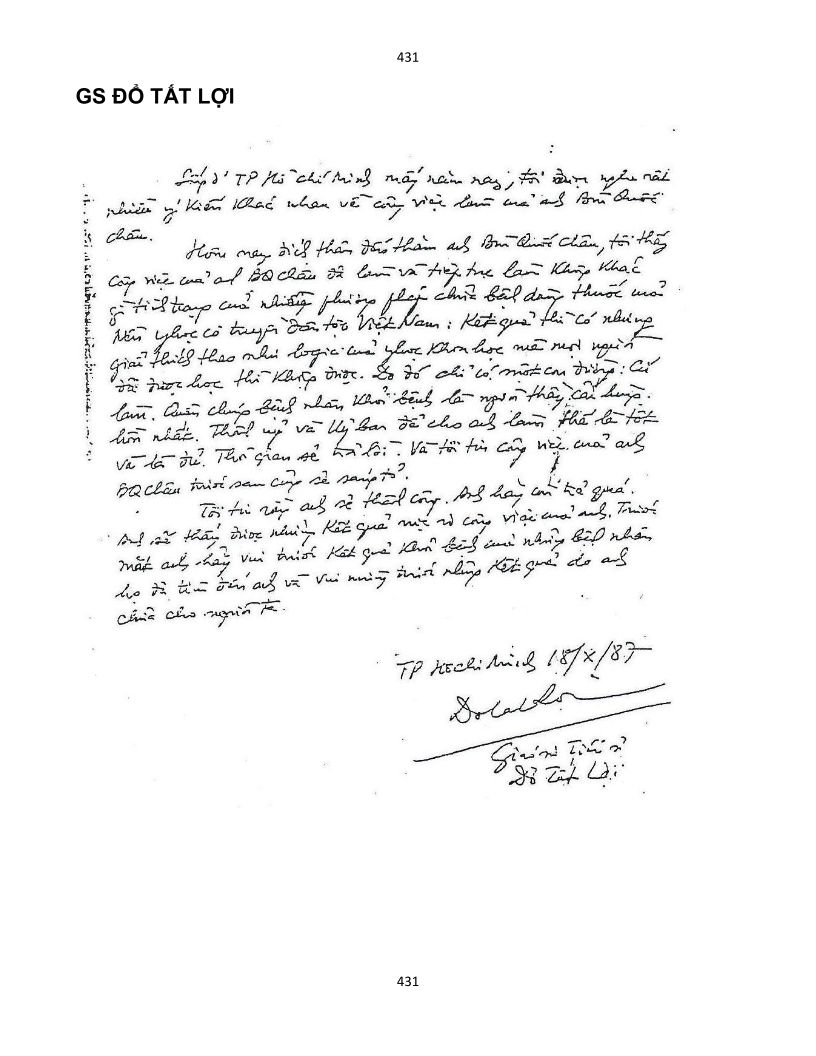 431
GS ĐỖ TẤT LỢI
TP Hồ Chí Minh mấy năm nay, tôi được nghe rất
nhiều ý kiến khác nhau về công việc làm của anh Bùi Quốc
Châu.
Hôm nay đích thân đến thăm anh Bùi Quốc Châu, tôi thấy
công việc của anh BQ Châu đã làm và tiếp tục làm không khác
gì tình trạng của những phương pháp chữa bệnh dùng thuốc của
nền y học cổ truyền dân tộc Việt Nam: Kết quả thì có nhưng
giải thích theo như logic của y học khoa học mà mọi người
đã được học thì không được. Do đó chỉ có một con đường: Cứ
làm. Quần chúng bệnh nhân khỏi bệnh là người thầy
hơn nhất. Thành uỷ và Uỷ ban để cho anh làm thế là tốt
và là đủ. Thời gian sẽ trả lời. Và tôi tin công việc của anh
BQ Châu trước sau cũng sẽ sáng tỏ.
Tôi tin rằng anh sẽ thành công. Anh hãy còn trẻ quá.
Anh sẽ thấy được những kết quả mỹ công việc của anh. Trước
mắt anh hãy vui trước kết quả khỏi bệnh của những bệnh nhân
họ đã tìm đến anh và vui mừng trước những kết quả do anh
chữa cho người ta.
TP Hồ Chí Minh 18/X/87
Giáo sư Tiến sĩ
Đỗ Tất Lợi
431